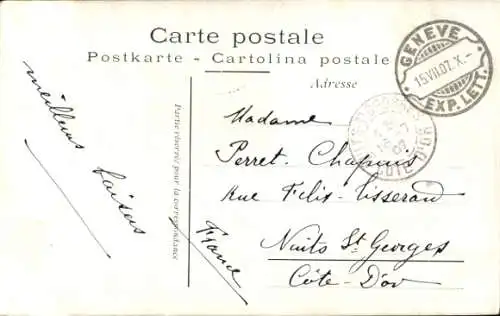 Carte postale
Postkarte - Cartolina postale
Adresse
GENEVE
15 VII.07. X. -
EXP. LETT.
CÔTE-D'OR
Partie réservée pour la correspondance
meilleurs
baisers
Madame
Perret. Chapuis
Rue Félis-Tisserand
Nuits St Georges
Côte-D'or
France